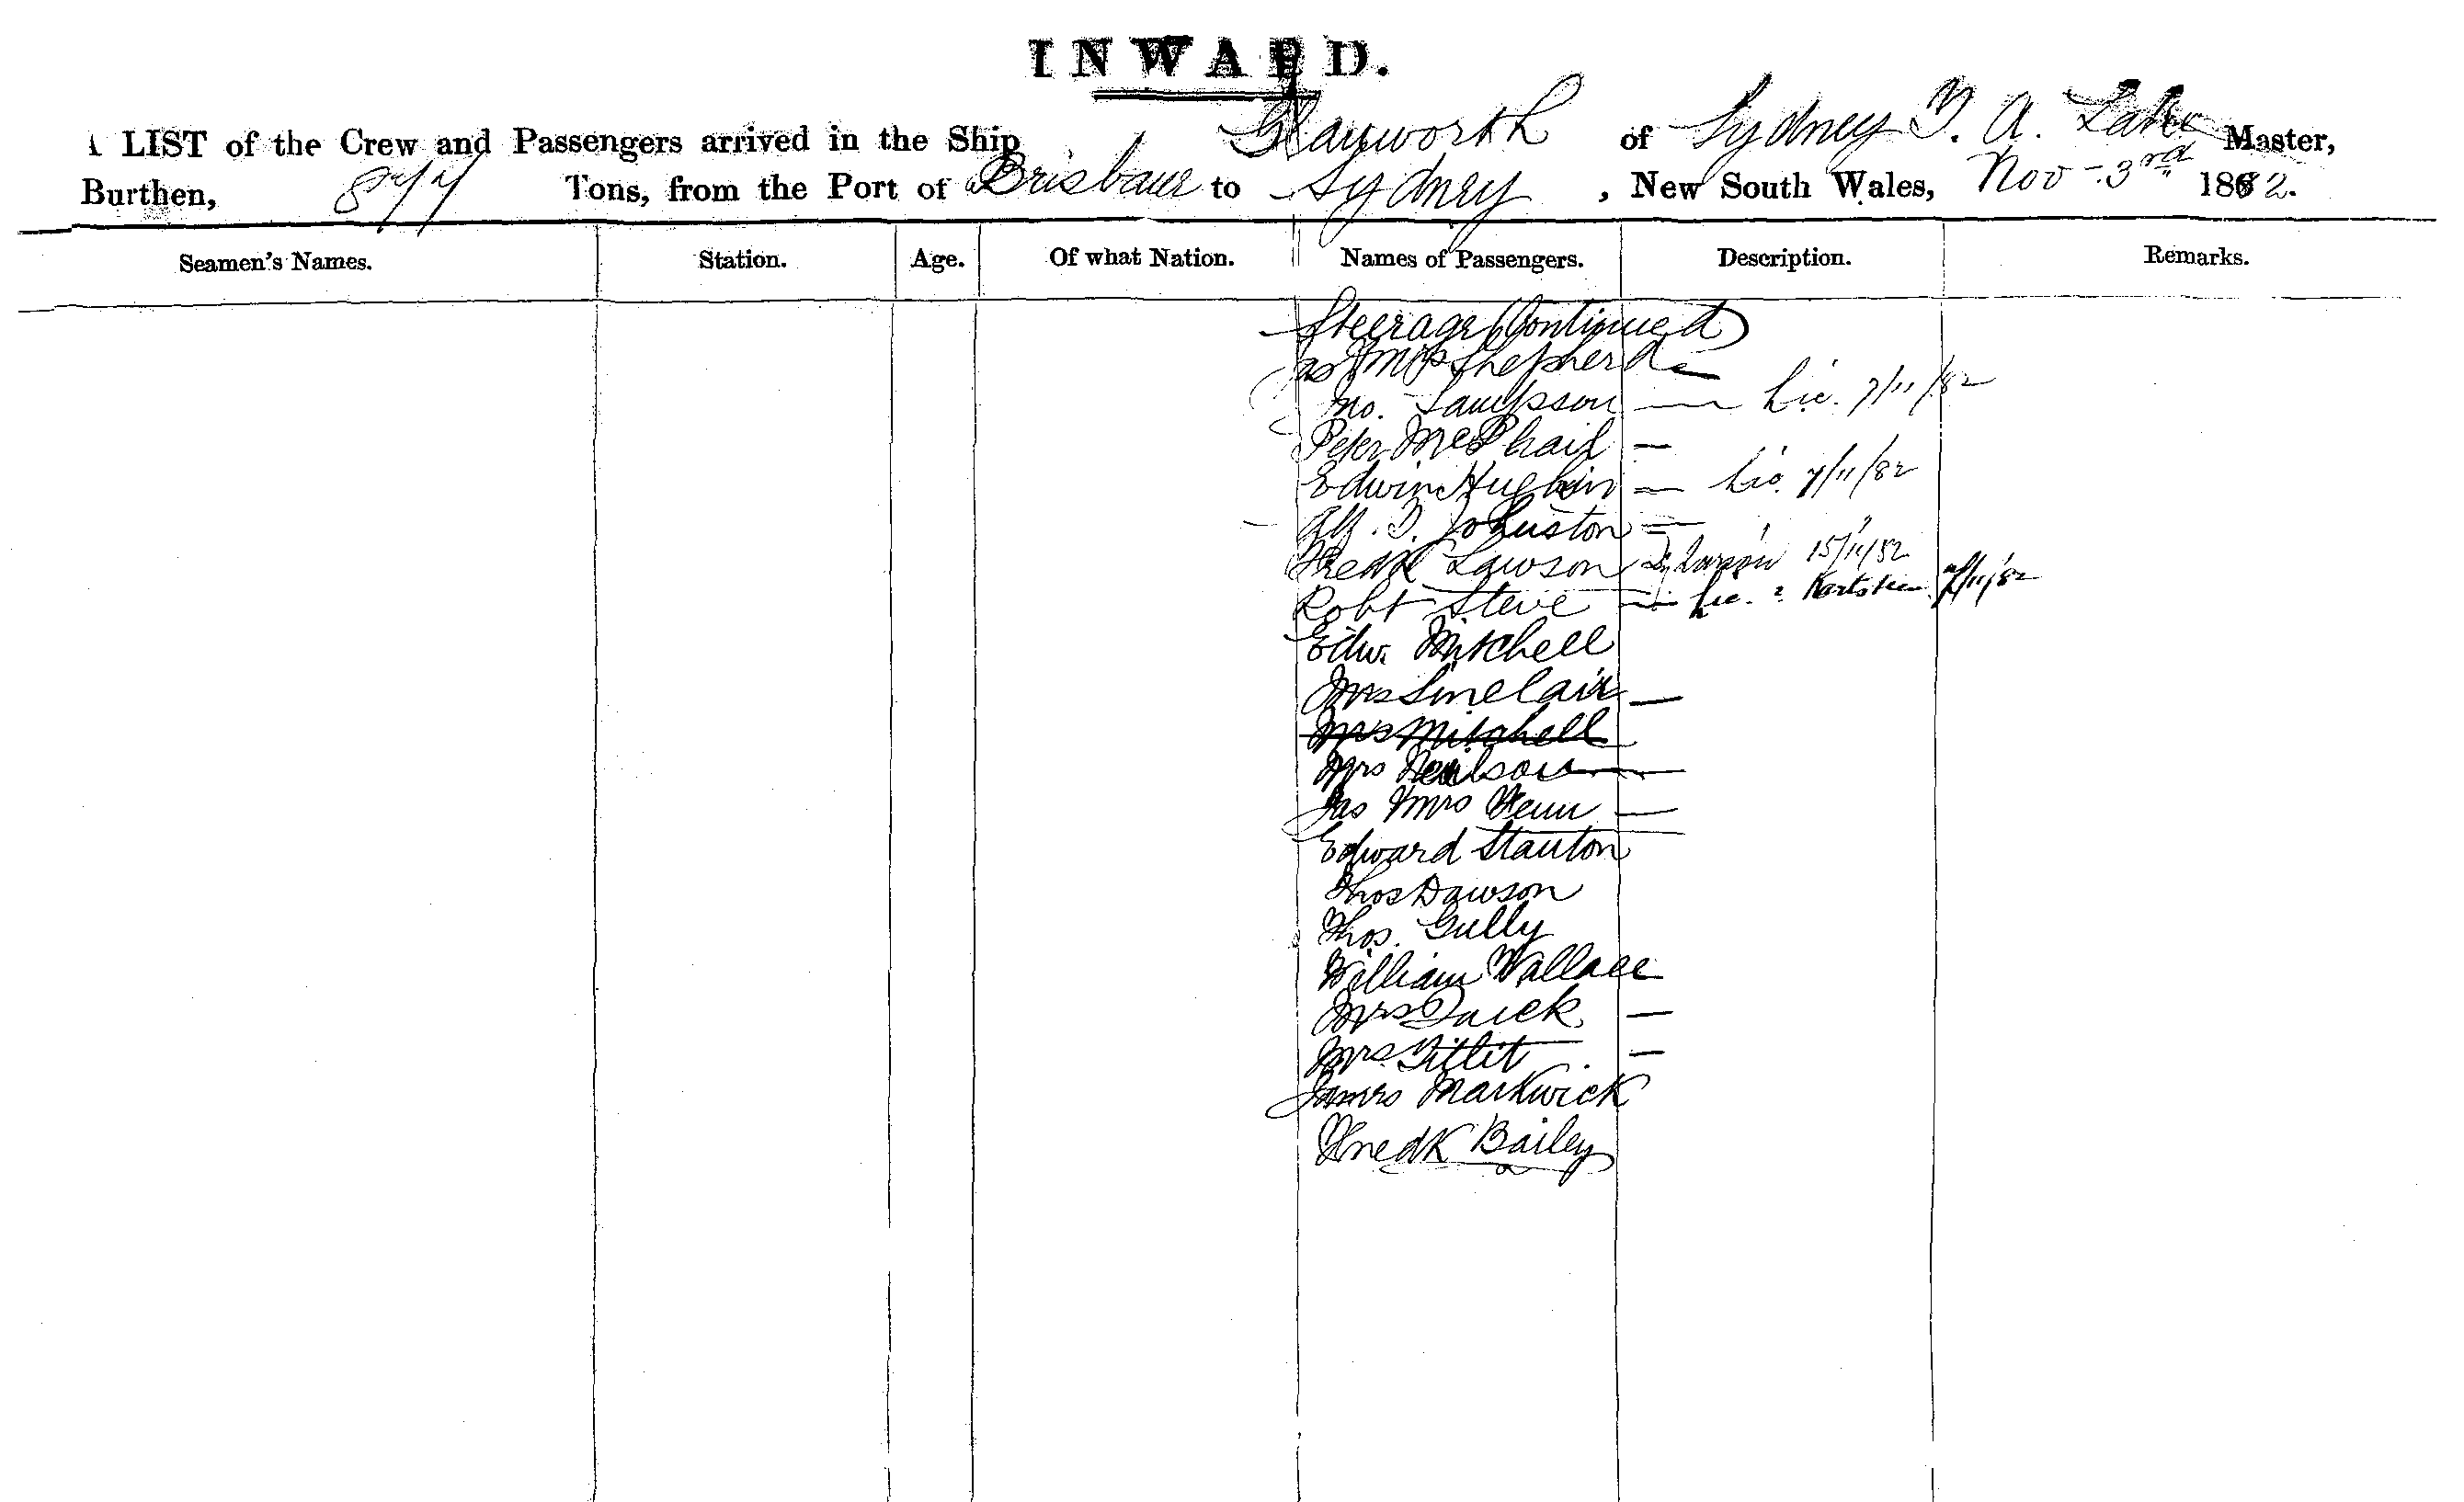 INWARD.
LIST of the Crew and Passengers arrived in the Ship Glayworth of Sydney T. A. Lake Master,
Burthen, 877 Tons, from the Port of Brisbane to Sydney, New South Wales, Nov - 3rd 1882.
Seamen's Names. Station. Age. Of what Nation. Names of Passengers. Description. Remarks.
Steerage Continued
Mrs Shepherd
Jno. Sampson — Lic. 7/11/82
Peter McPhail —
Edwin — Lic. 7/11/82
Alf. T. Johnston
Fredk Lawson 15/11/82
Robt Steve — Lic. 7/11/82
Edw. Mitchell
Mrs Sinclair —
Mrs Mitchell
Mrs Neilson —
Jas & Mrs Fenn —
Edward Stanton
Thos Dawson
Thos. Gully
William Wallace
Mrs Quick —
Mrs. Tillit —
James Markwick
Fredk Bailey